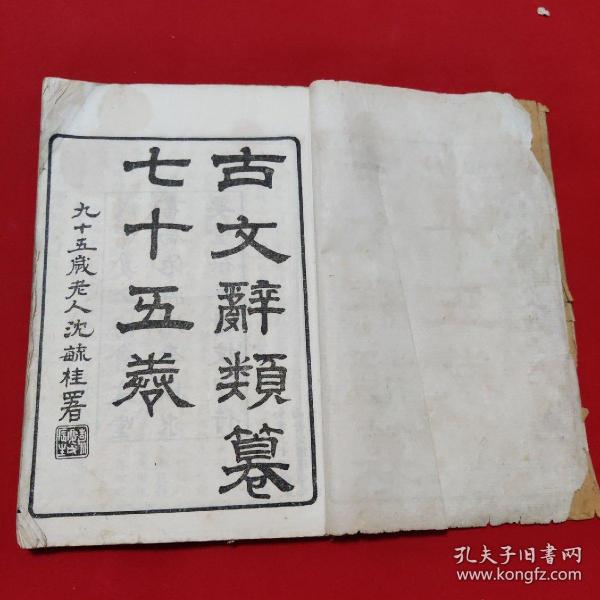 古文辭類纂
七十五卷
九十五歲老人沈毓桂署
孔夫子旧书网
www.kongfz.com